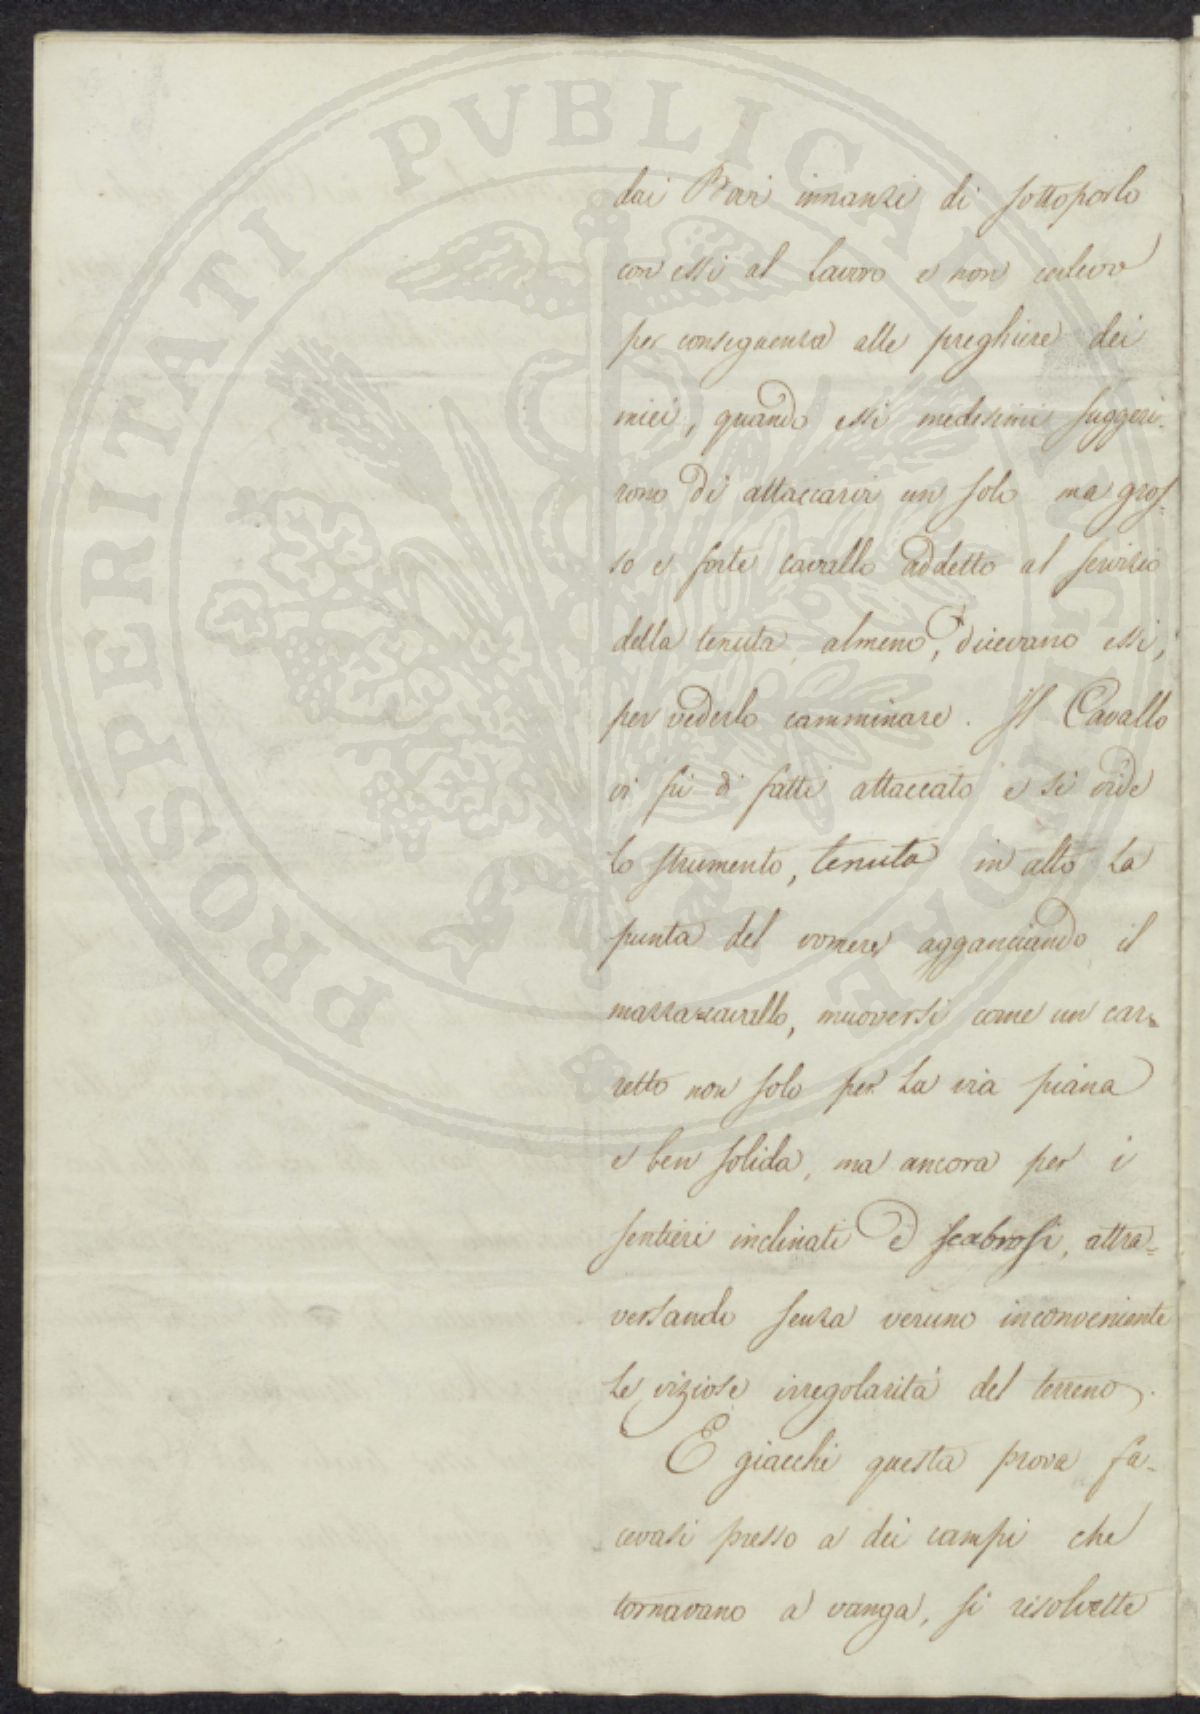 dai Bovi innanzi di sottoporlo
con essi al lavoro e non cedevo
per conseguenza alle preghiere dei
miei, quando essi medesimi suggeri-
rono di attaccarvi un solo ma gros-
so e forte cavallo addetto al servizio
della tenuta, almeno, dicevano essi,
per vederlo camminare. Il Cavallo
vi fù di fatti attaccato e si vide
lo strumento, tenuta in alto la
punta del vomere agganciando il
mazzacavallo, muoversi come un car-
retto non solo per la via piana
e ben solida, ma ancora per i
sentieri inclinati e scabrosi, attra=
versando senza veruno inconveniente
le viziose irregolarità del terreno.
E giacchè questa prova fa-
cevasi presso a dei campi che
tornavano a vanga, si risolvette
PROSPERITATI PVBLICAE